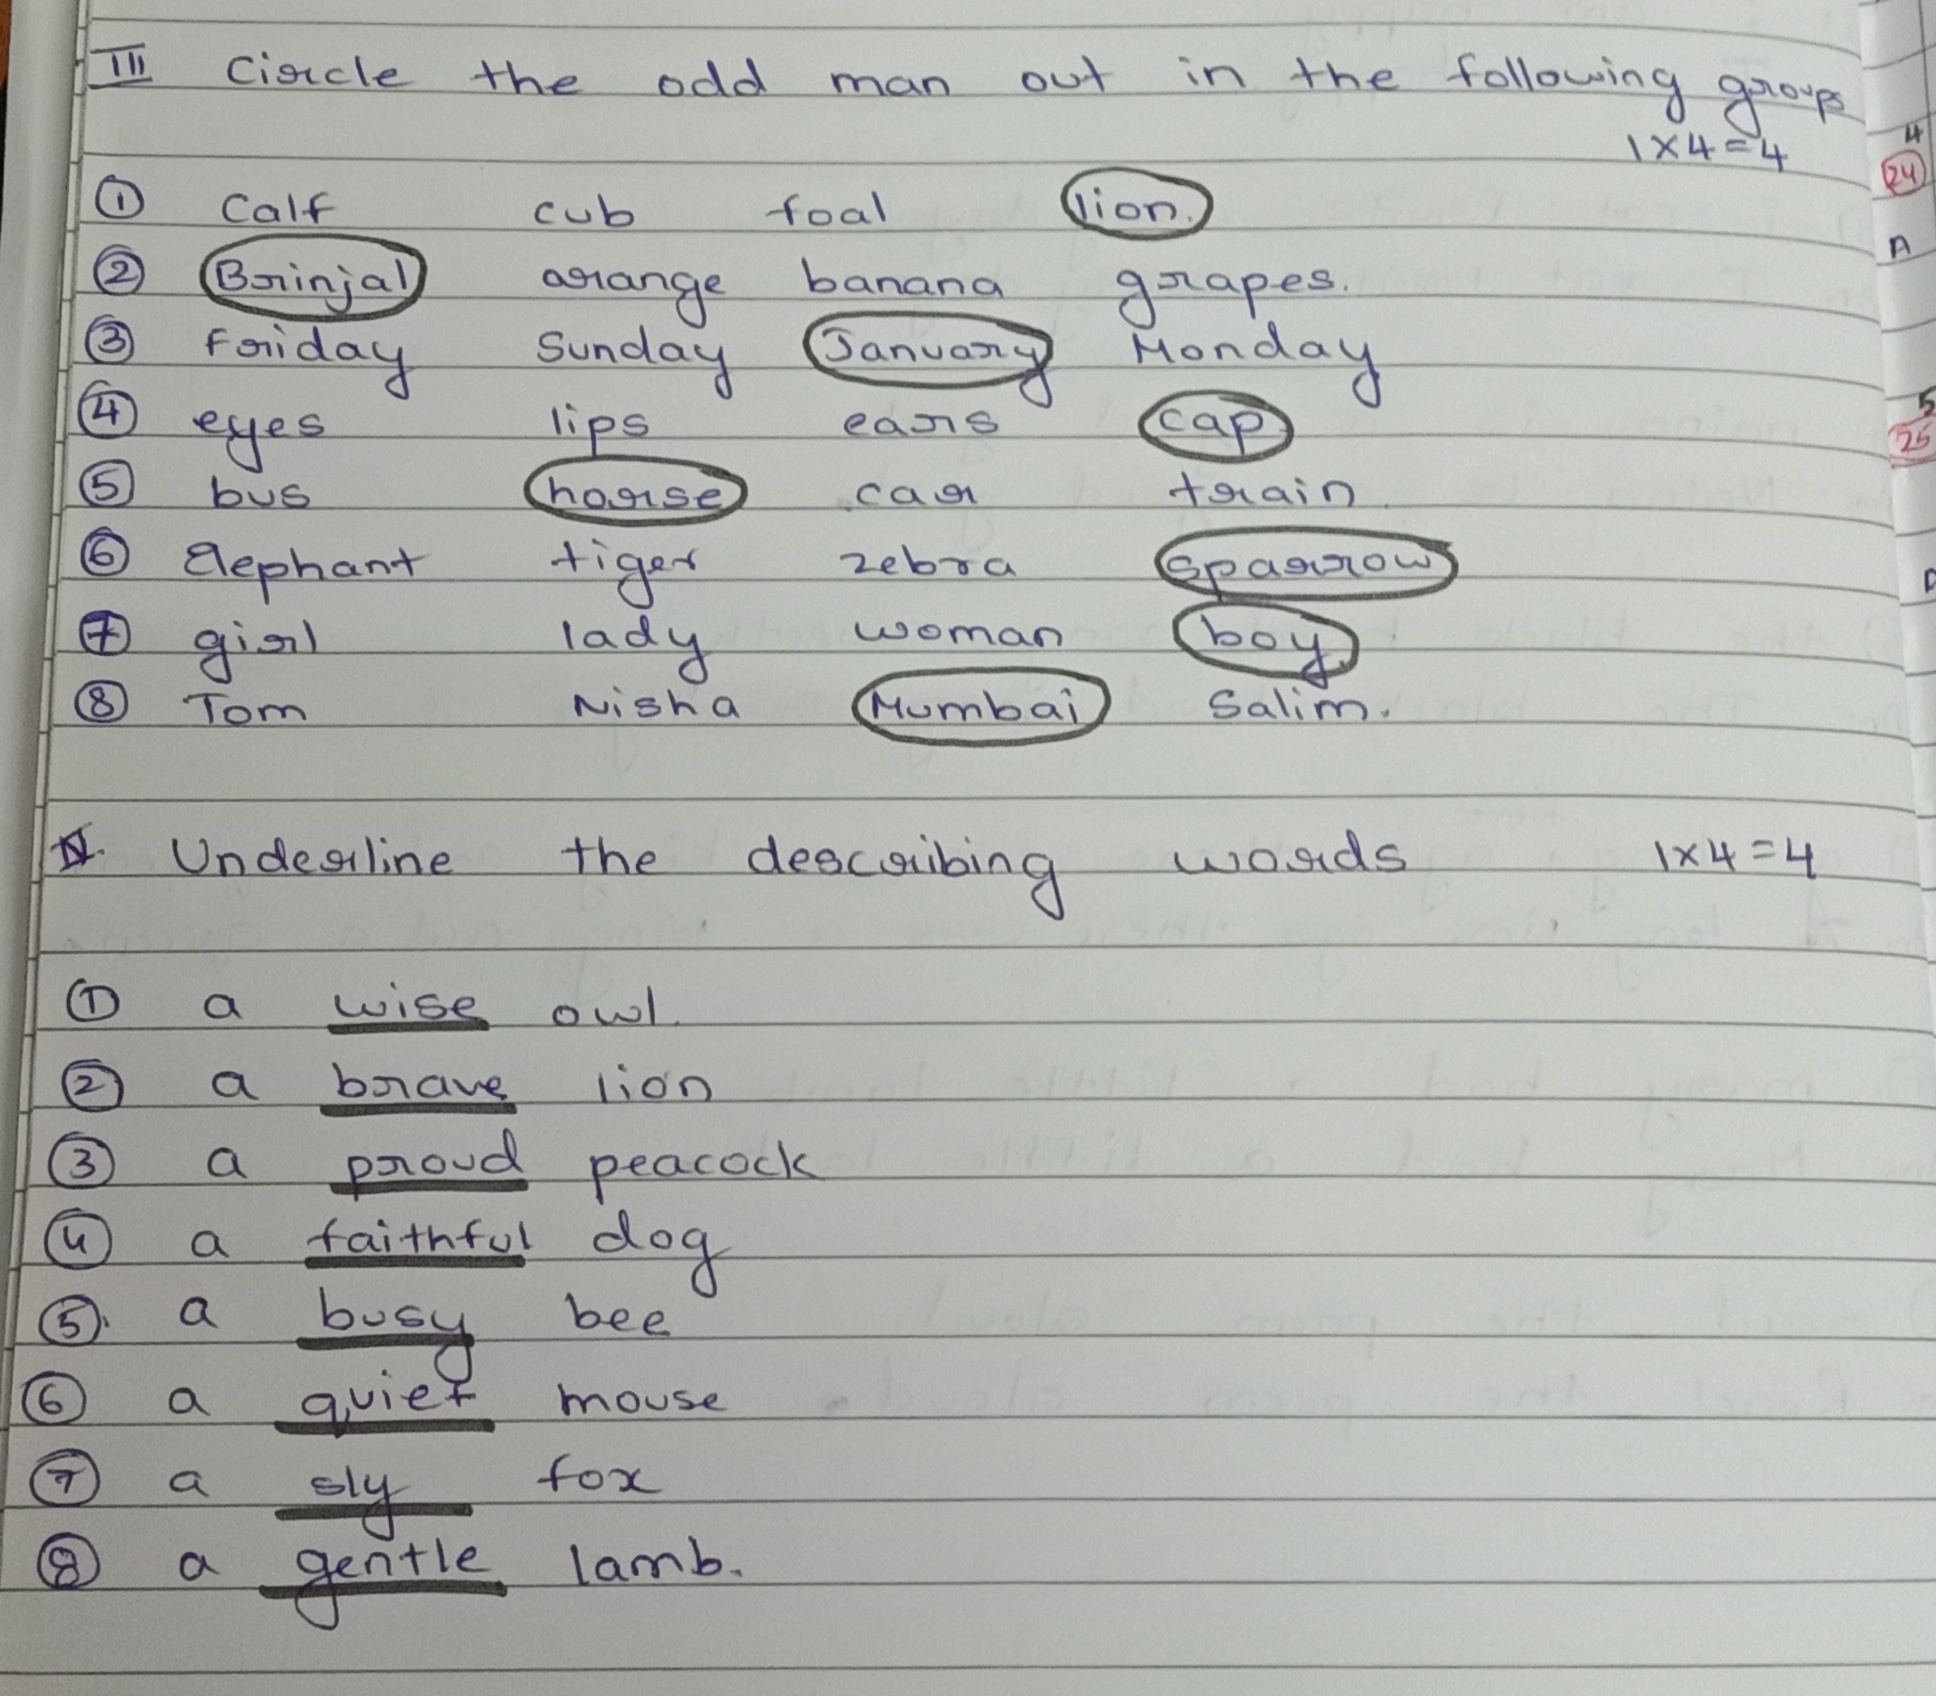 III Circle the odd man out in the following groups
1×4=4
① Calf cub foal lion.
② Brinjal orange banana grapes.
③ Friday Sunday January Monday
④ eyes lips ears cap
⑤ bus horse car train.
⑥ Elephant tiger zebra sparrow
⑦ girl lady woman boy
⑧ Tom Nisha Mumbai Salim.
IV. Underline the describing words 1×4=4
① a wise owl.
② a brave lion
③ a proud peacock
④ a faithful dog
⑤. a busy bee
⑥ a quiet mouse
⑦ a sly fox
⑧ a gentle lamb.
4
24
A
5
25